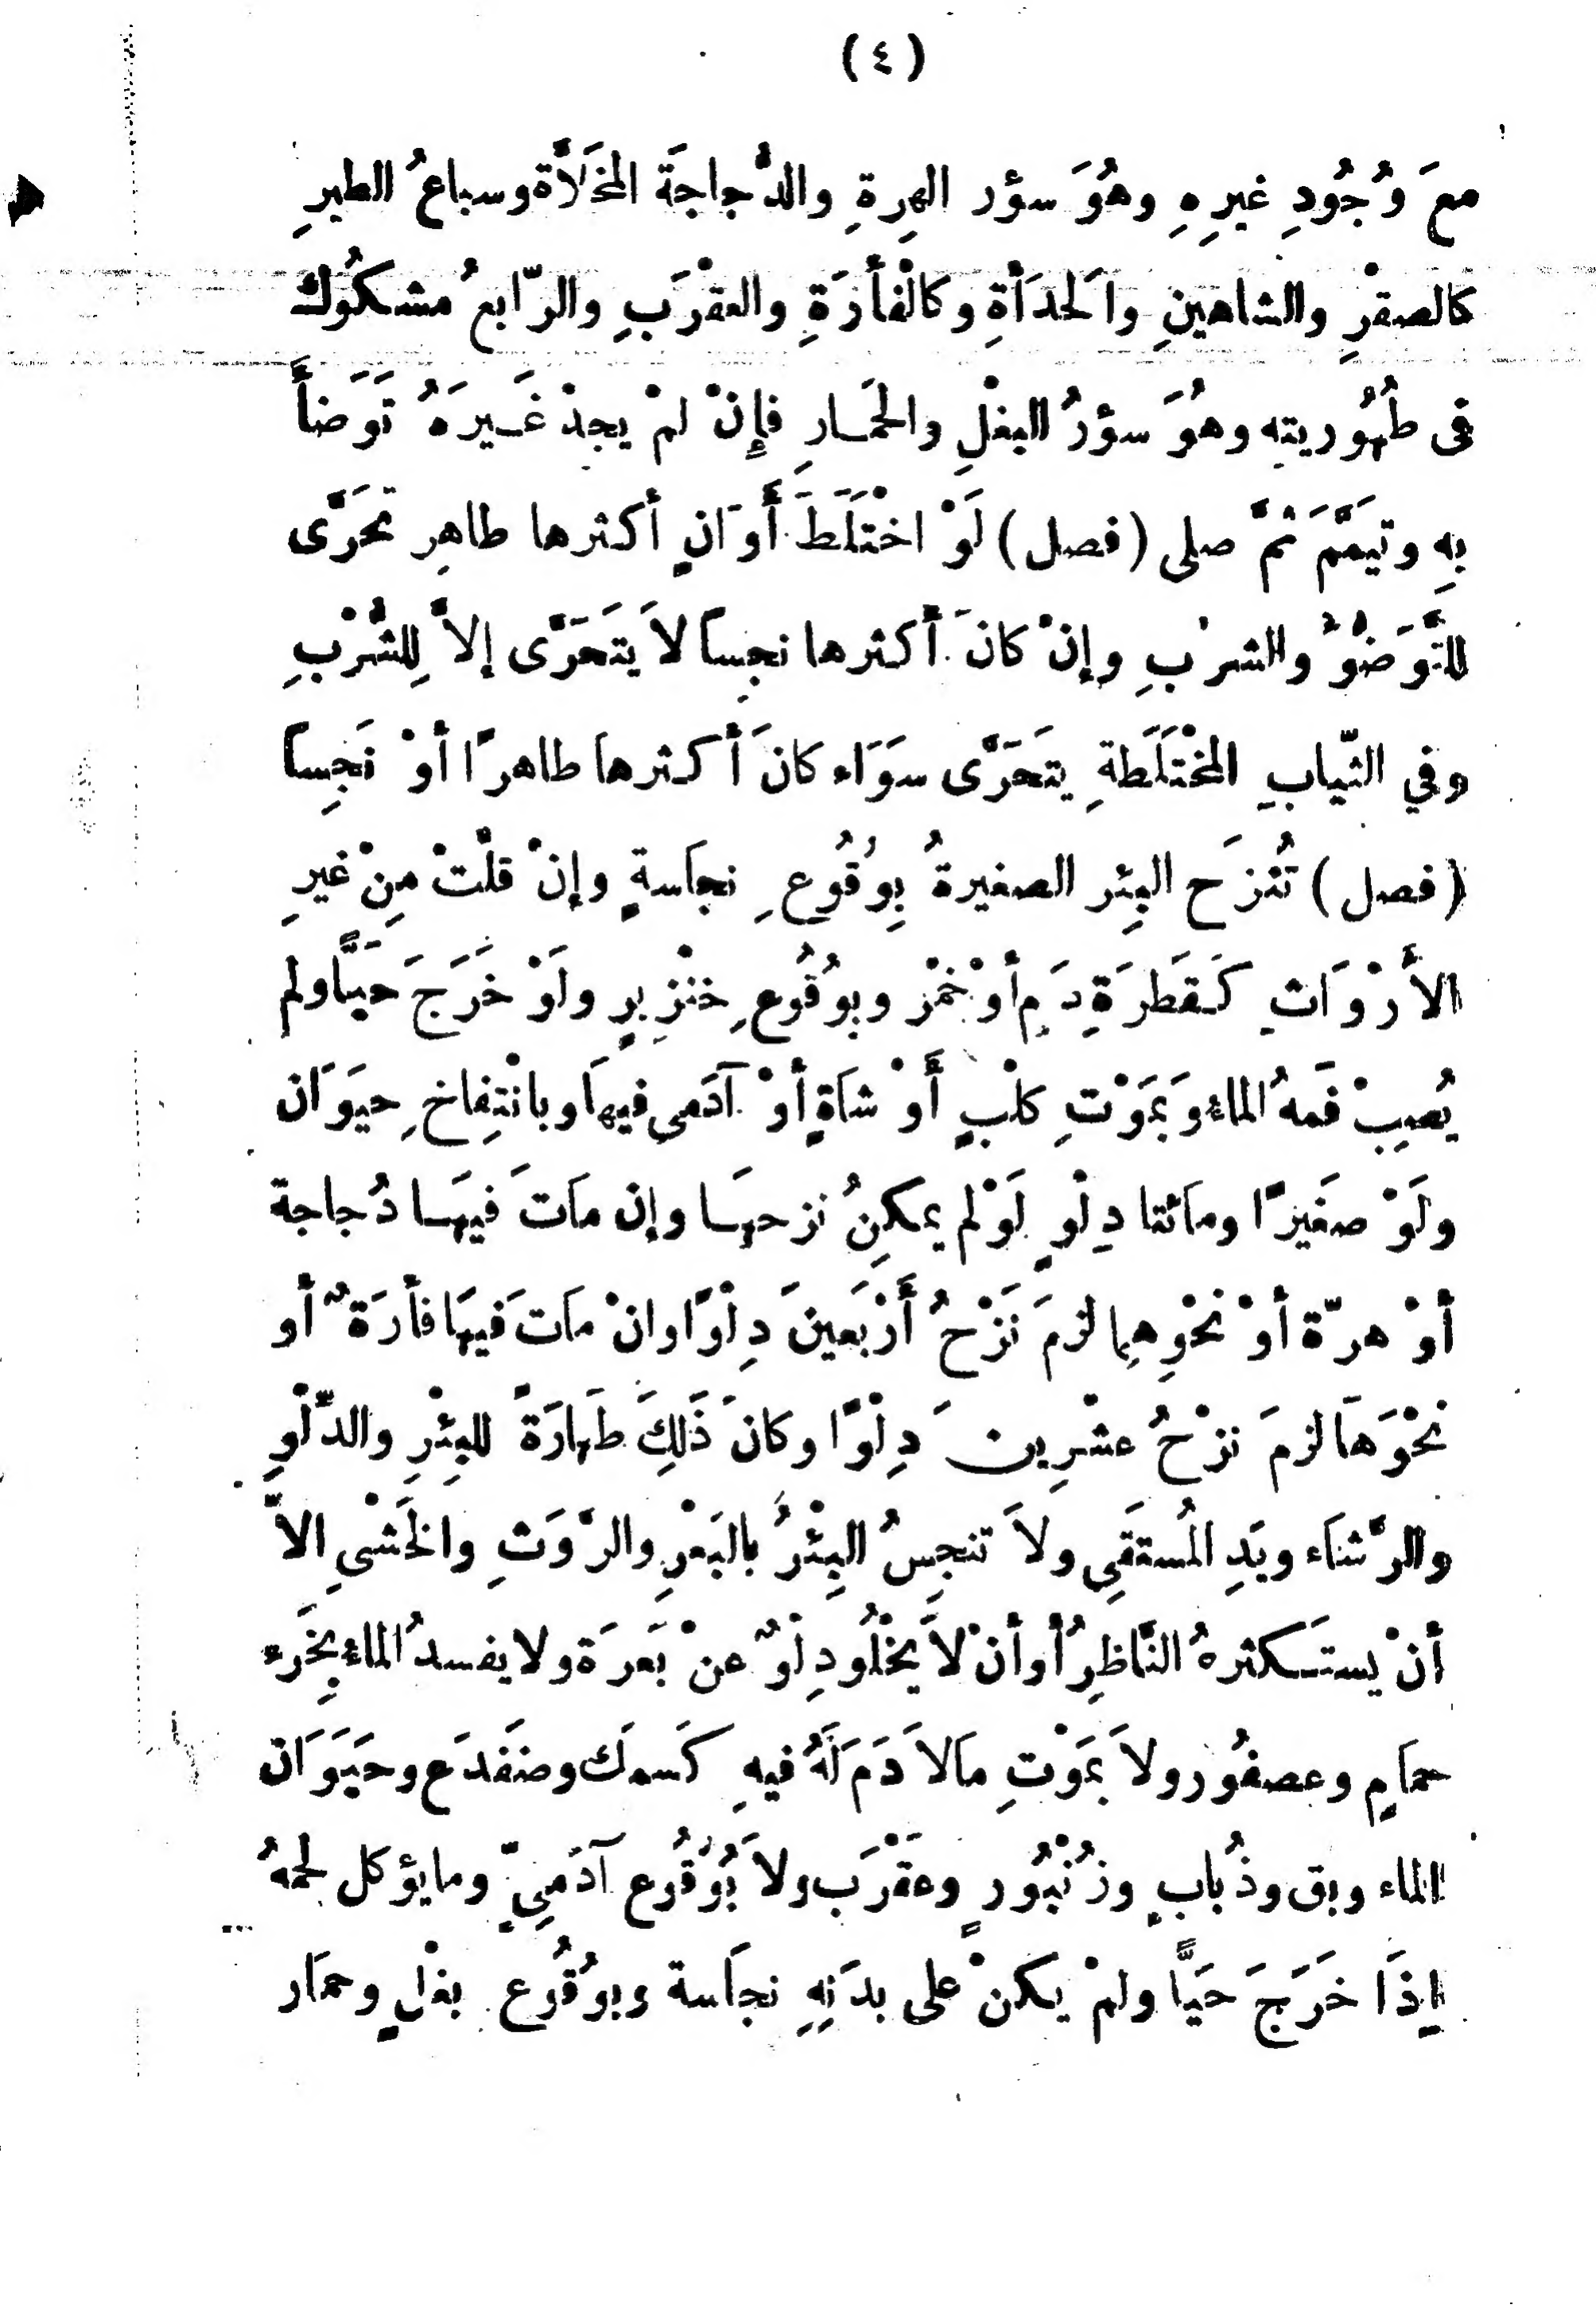 (٤)
معَ وُجُودِ غيرِهِ وهُوَ سؤر الهِرةِ والدُّجاجَة المخَلاَّة وسباعُ الطيرِ
كالصقرِ والشاهينِ والحدَأةِ وكالْفأرَةِ والعقْرَبِ والرّابعُ مشكُوك
فى طهُوريته وهُوَ سؤرُ البغْلِ والحمَارِ فإِنْ لمْ يجدْ غَيرَهُ تَوَضأَ
بِهِ وتيَمَّمَ ثمَّ صلى (فصل) لَوْ اخْتَلَطَ أَوَانٍ أكثرها طاهِر تحَرَّى
للتَّوَضُّؤ والشرْبِ وإنْ كانَ أكثرها نجِساً لاَ يتَحَرَّى إلاَّ لِلشُّرْبِ
وفي الثّيابِ المخْتَلَطةِ يتَحَرَّى سوَاء كانَ أكثرها طاهرًا أوْ نَجِساً
(فصل) تُنْزَح البِئر الصغيرةُ بِوُقُوعِ نجاَسةٍ وإنْ قلَّتْ مِنْ غيرِ
الأَرْوَاثِ كَقَطرَةِ دَمٍ أوْ خمْر وبِوُقُوعِ خنْزِيرٍ ولَوْ خَرَجَ حيًّا ولم
يُصِبْ فَمهُ الماء وَبمَوْتِ كلْبٍ أَوْ شاَةٍ أوْ آدَمى فيهاَ وبانْتِفاخِ حيَوَان
ولَوْ صغَيرًا ومائتا دِلْوٍ لَوْ لم يمكِنُ نزحهَا وإن ماَتَ فيهَا دُجاجة
أوْ هرّة أوْ نحْوِهِما لزمَ نَزْحُ أَرْبَعينَ دِلْوًا وانْ ماَتَ فيهَا فأرَةٌ أو
نحْوَهَا لزمَ نزْحُ عشْرِينَ دِلْوًا وكانَ ذَلِكَ طَهارَةً للبِئْرِ والدّلْوِ
والرَّشاَء ويَدِ المُستقَىِ ولاَ تنجِسُ البِئْرُ بالبَعْرِ والرَّوَثِ والخَشْىِ الاَّ
أنْ يستَكثرهُ النَّاظِرُ أو أنْ لاَ يخْلُو دِلْوٌ عنْ بَعرَة ولا يفسدُ الماء بِخَرء
حماَمٍ وعصفُور ولاَ بمَوْتِ ماَلاَ دَمَ لَهُ فيهِ كَسمك وضفَدَع وحيَوَان
الماء وبق وذُبابٍ وزُنْبُورٍ وعقْرَب ولاَ بُوُقُوع آدَمِىّ وما يؤكل لحمهُ
اِذَا خَرَجَ حَيًّا ولمْ يكنْ على بدَنِهِ نجاَسة وبوُقُوع بغْلٍ وحمَار